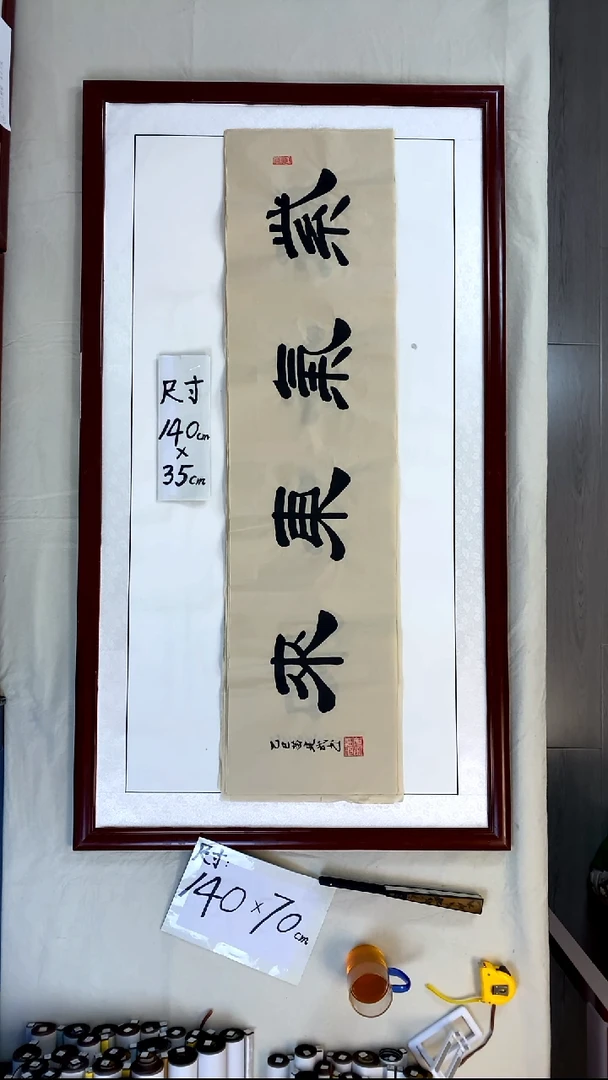 紫氣東來
乙巳
尺寸
140cm
×
35cm
尺寸:
140×70cm